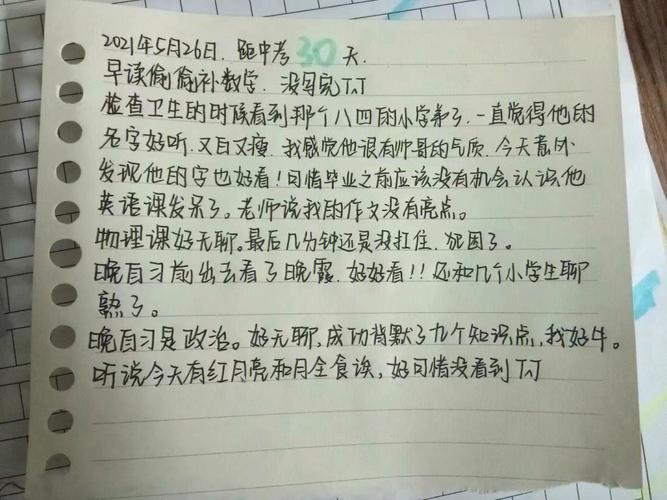 2021年5月26日. 距中考30天.
早读偷偷补数学. 没写完TAT
检查卫生的时候看到那个八四的小学弟了. 一直觉得他的
名字好听. 又白又瘦. 我感觉他很有帅哥的气质. 今天意外
发现他的字也好看！可惜毕业之前应该没有机会认识他
英语课发呆了。老师说我的作文没有亮点。
物理课好无聊。最后几分钟还是没扛住. 犯困了。
晚自习前出去看了晚霞. 好好看!! 还和几个小学生聊
熟了。
晚自习是政治。好无聊, 成功背默了九个知识点, 我好牛。
听说今天有红月亮和月全食诶, 好可惜没看到TAT